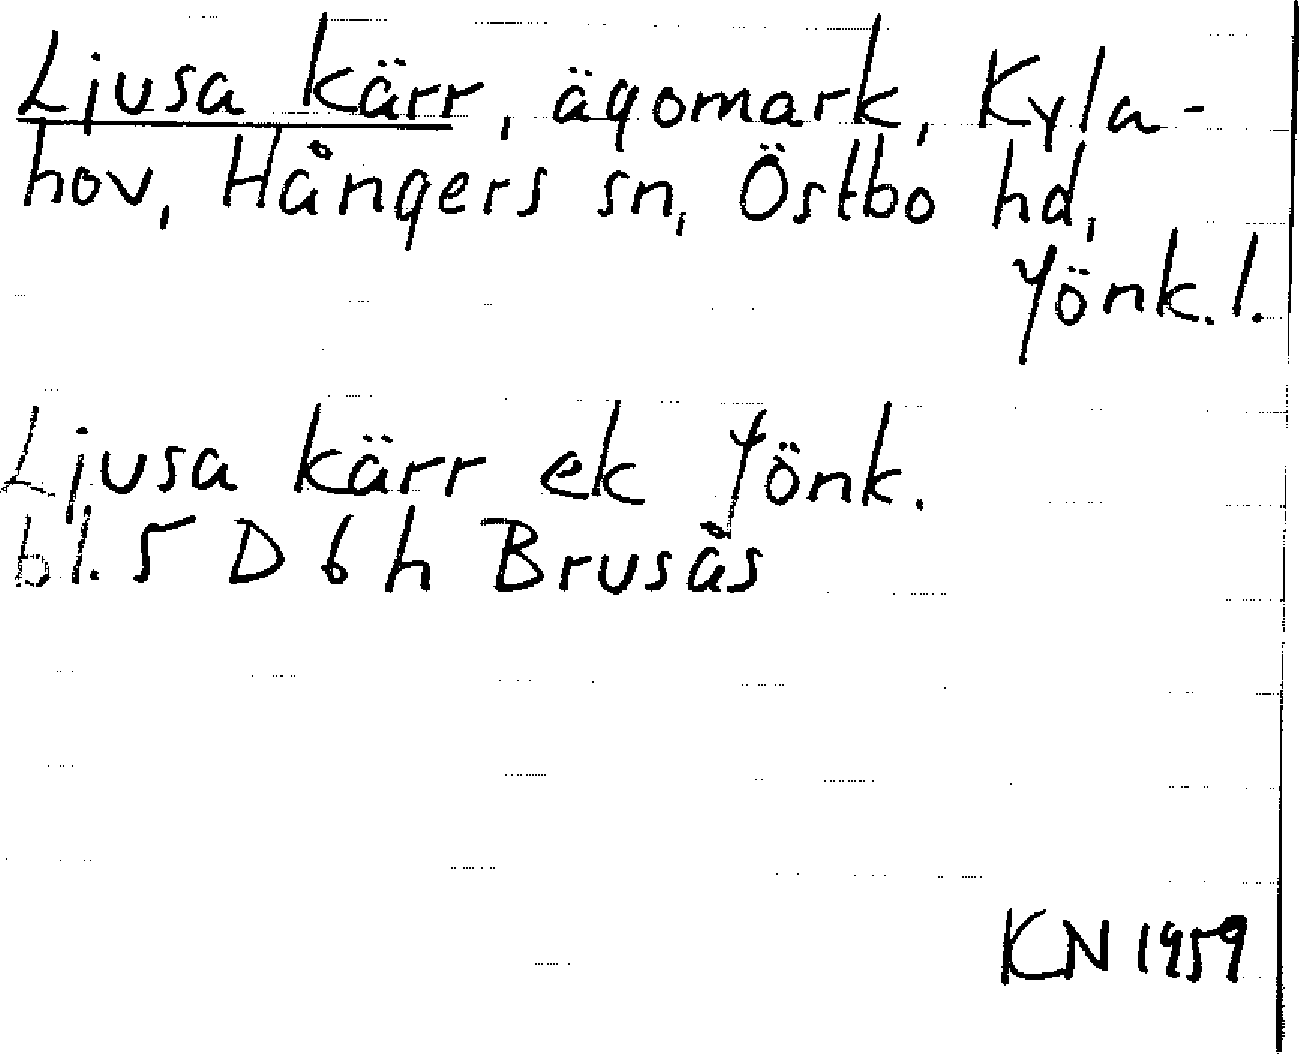 Ljusa kärr, ägomark, Kyla-
hov, Hångers sn, Östbo hd,
Jönk. l.
Ljusa kärr ek Jönk.
bl. 5 D 6 h Brusås
KN 1959